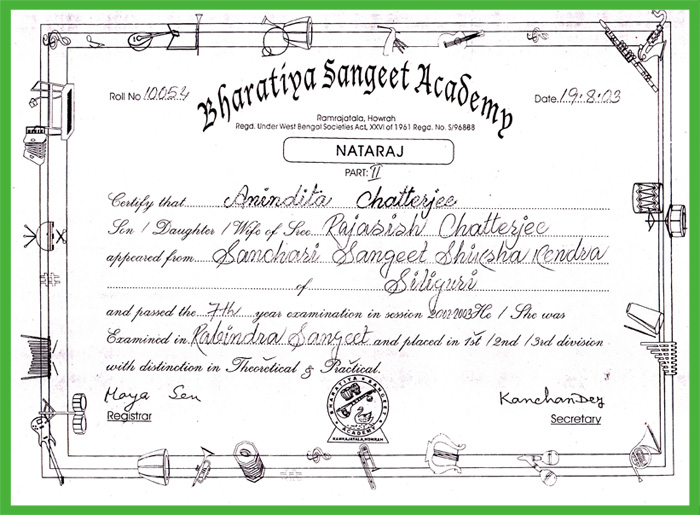 Bharatiya Sangeet Academy
Roll No 10054
Date 19.8.03
Ramrajatala, Howrah
Regd. Under West Bengal Societies Act, XXVI of 1961 Regd. No. S/96888
NATARAJ
PART: II
Certify that Anindita Chatterjee
Son / Daughter / Wife of Sree Rajasish Chatterjee
appeared from Sanchari Sangeet Shiksha Kendra
of Siliguri
and passed the 7th year examination in session 2002-2003 He / She was
Examined in Rabindra Sangeet and placed in 1st / 2nd / 3rd division
with distinction in Theoretical & Practical.
Maya Sen
Registrar
BHARATIYA SANGEET
ACADEMY
RAMRAJATALA, HOWRAH
Kanchan Dey
Secretary